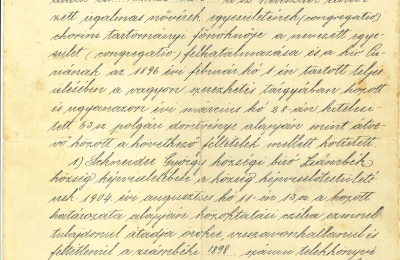 zett irgalmas nővérek egyesületének (congregatio)
chorim tartományi főnöknője a nevezett egye-
sület (congregatio) felhatalmazása és a kir. Cu-
riának az 1896 évi február hó 1 én tartott teljes
ülésében a vagyon szerezhetés tárgyában hozott
és ugyanazon évi március hó 28-án hitelesi-
tett 63. sz. polgári döntvénye alapján mint átve-
vő között a következő feltételek mellett köttetett.
1) Schneider György községi biró Zsámbék
község képviseletében a község képviselőtestületé
nek 1904. évi augusztus hó 11-én 13. sz. a hozott
határozata alapján közoktatási célra ezennel
tulajdonul átadja örökre, visszavonhatlanul és
feltétlenül a zsámbéki 1898 számu telekkönyvi